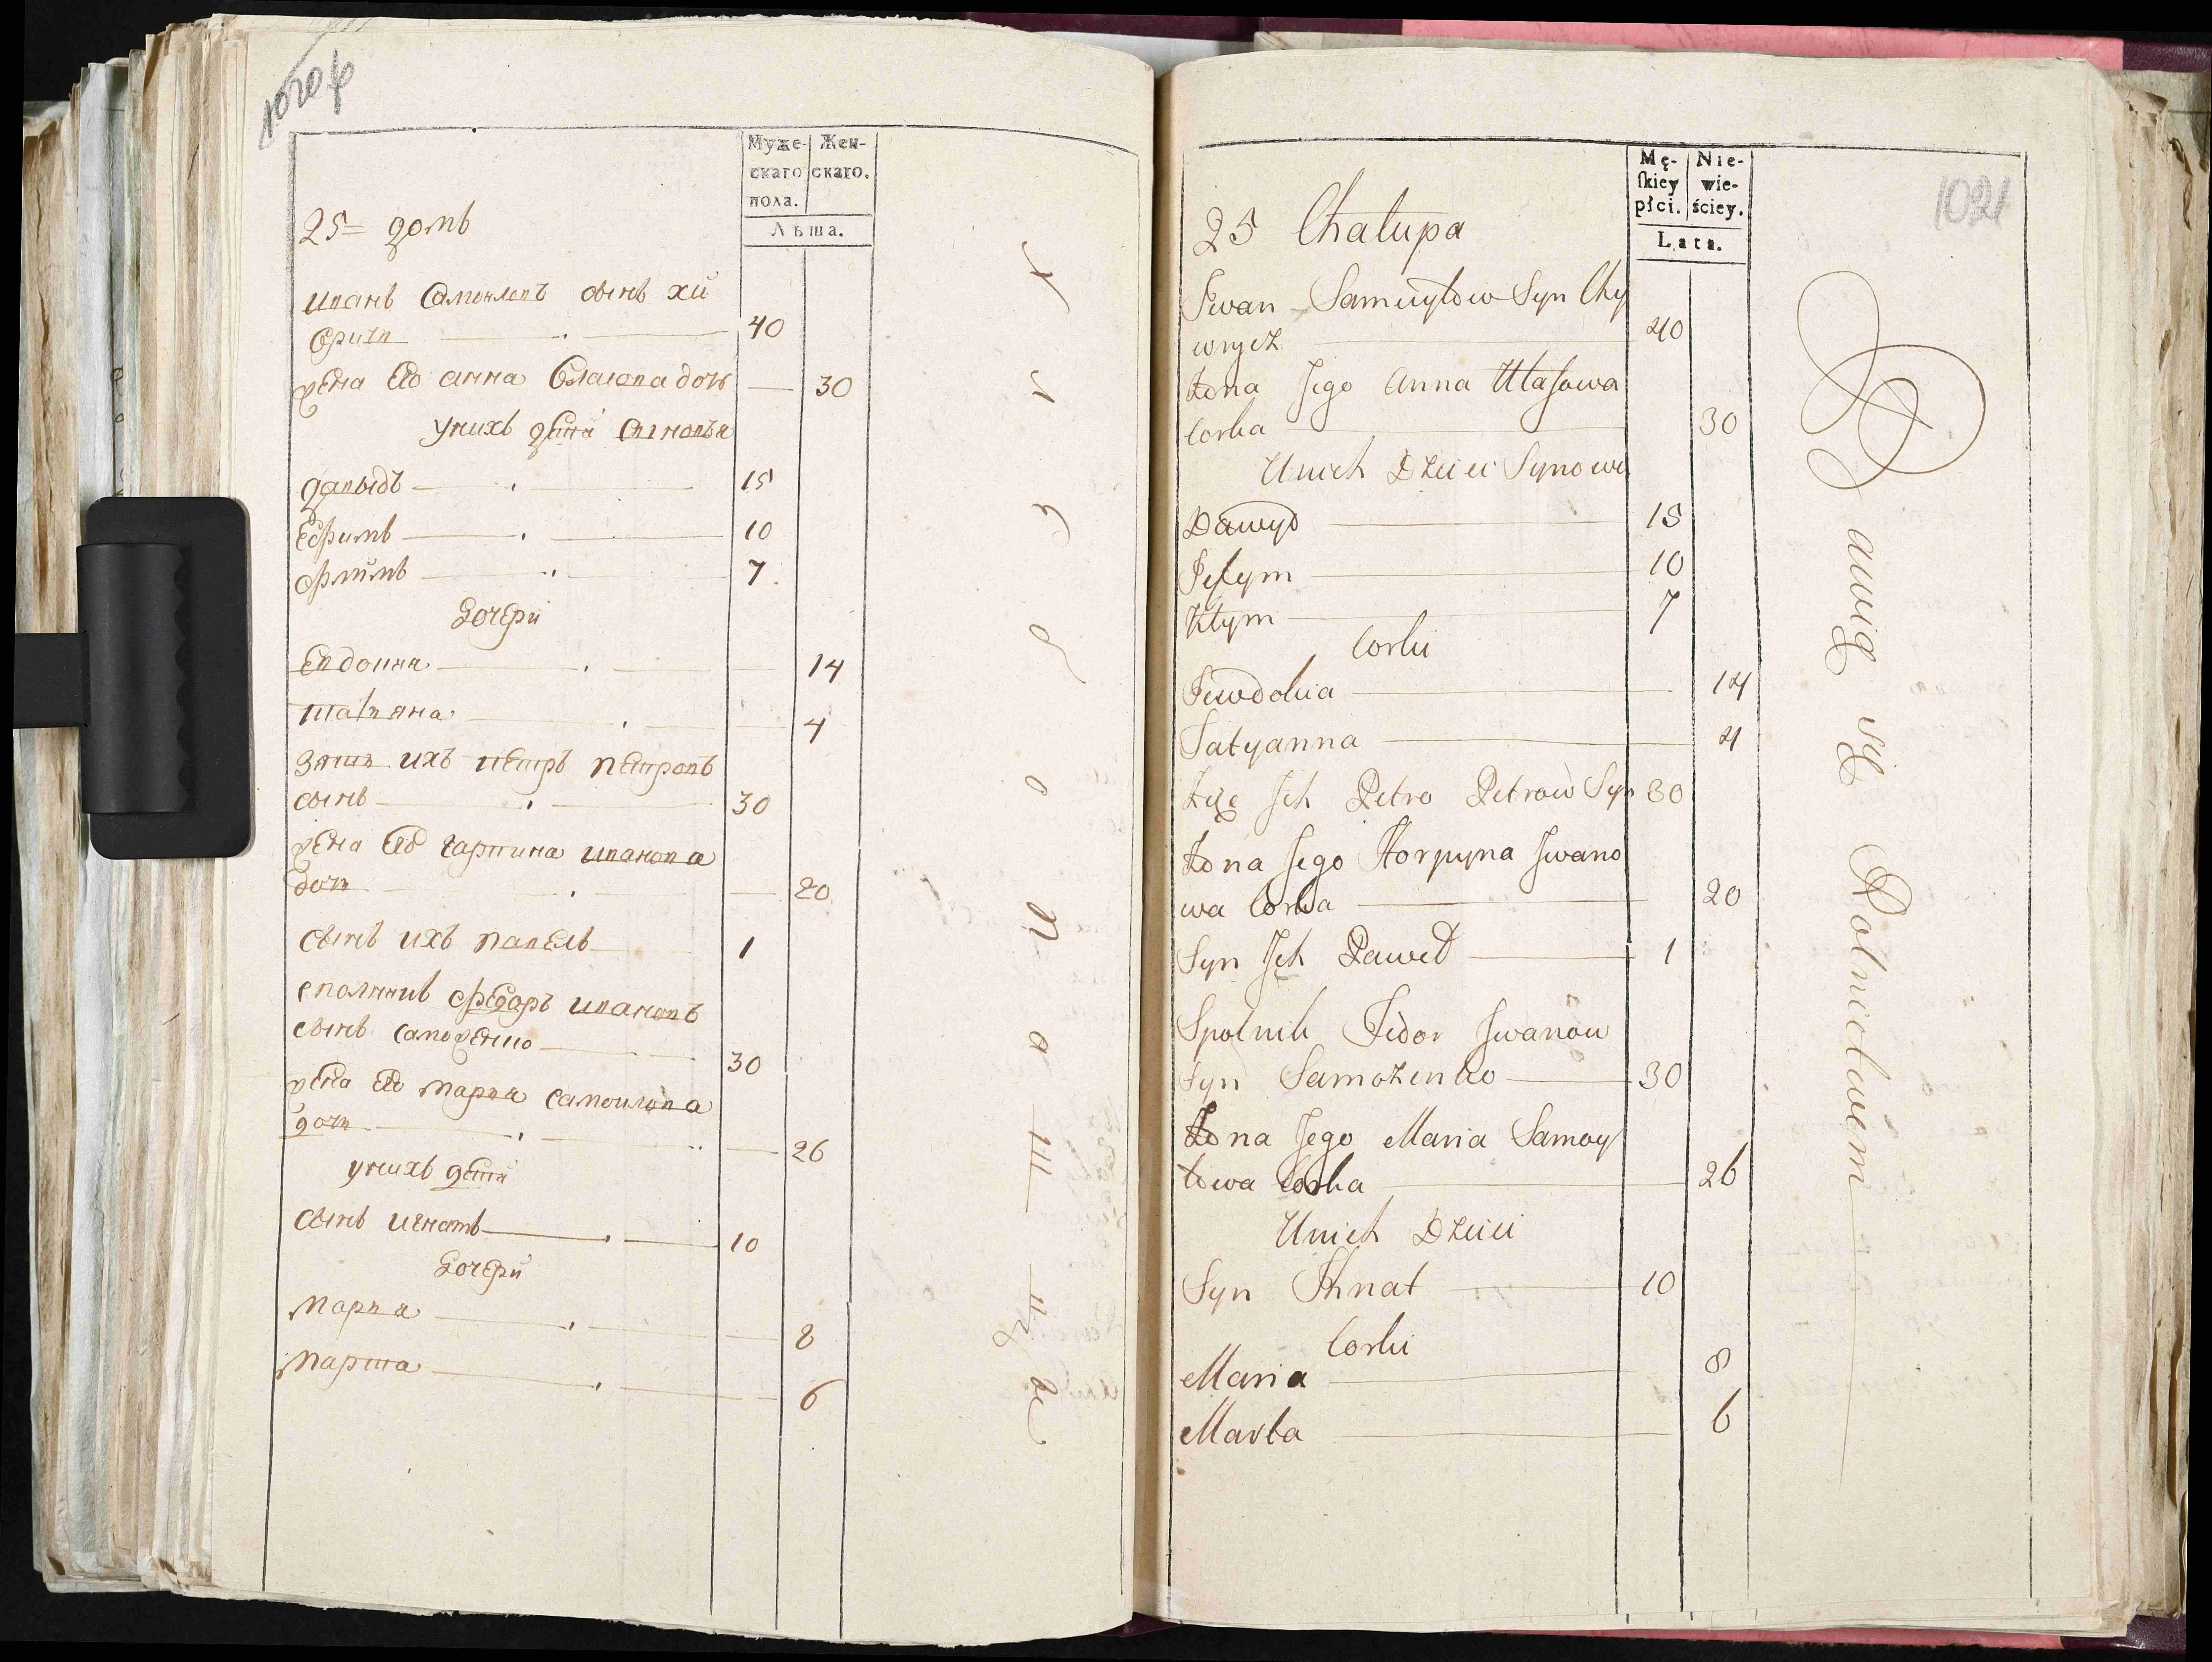 1020 об
Муже-
скаго
пола.
Жен-
скаго.
Лѣта.
25= домъ
иванъ Самойловъ сынъ хи
врич 40
жена Его анна Власова дочь 30
уних дѣти сыновья
давыдъ 15
Ефимъ 10
климъ 7
дочери
Евдокия 14
татьяна 4
зять ихъ петръ петровъ
сынъ 30
жена Его гарпина иванова
дочь 20
сынъ ихъ павелъ 1
сполникъ федоръ ивановъ
сынъ саможенко 30
жена Его мария самоилова
дочь 26
унихъ дѣти
сынъ игнатъ 10
дочери
мария 8
марта 6
Mę-
ſkiey
płci.
Nie-
wie-
ściey.
Lata.
1021
25 Chałupa
Iwan Samuyłow Syn Chy
wrycz 40
Żona Jego Anna Własowa
Corka 30
Unich Dzieci Synowie
Dawyd 15
Jefym 10
Kłym 7
Corki
Jewdokia 14
Tatyanna 4
Zięć Ich Petro Petrow Syn 30
Żona Jego Horpyna Iwano
wa Corka 20
Syn Ich Paweł 1
Spolnik Fedor Iwanow
Syn Samozenko 30
Żona Jego Maria Samoy
łowa Corka 26
Unich Dzieci
Syn Ihnat 10
Corki
Maria 8
Marta 6
Bawią się Rolnictwem